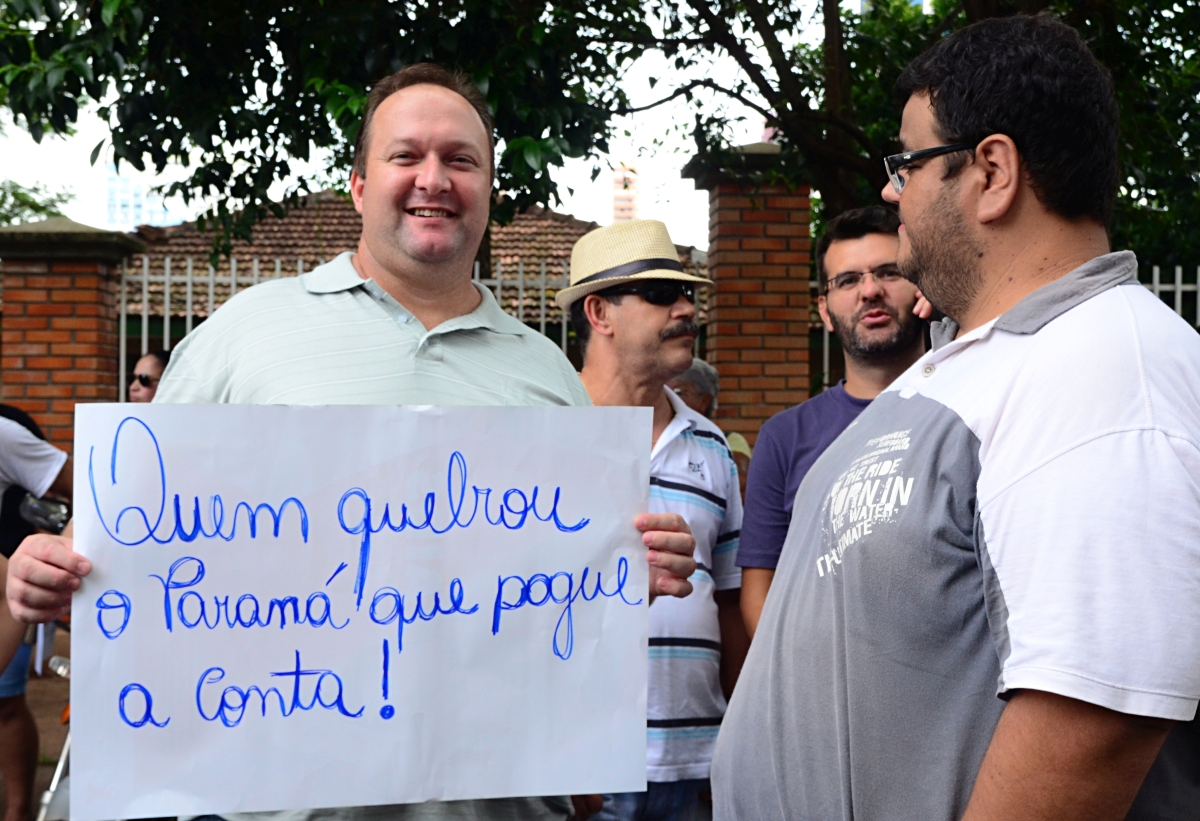 Quem quebrou
o Paraná que pague
a conta!
THE RIDE
BORN IN
THE WATER